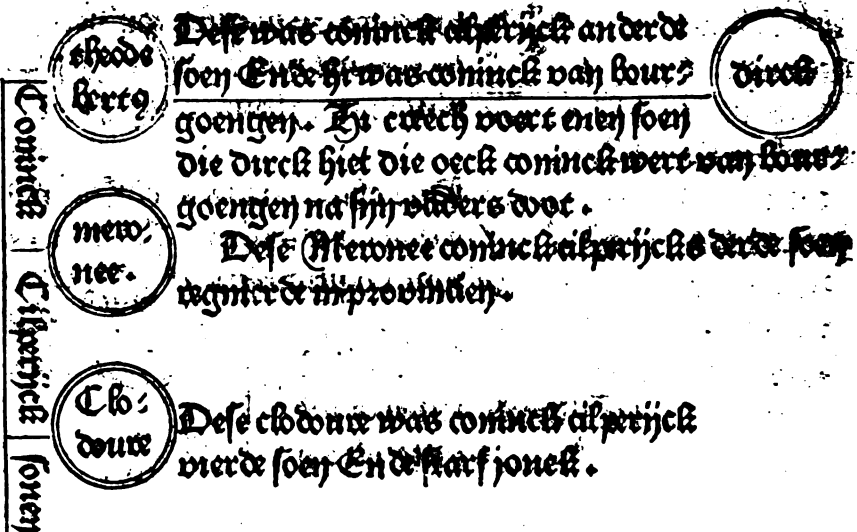 theode
bertꝰ
Dese was coninck cilperijck anderde
soen Ende hi was coninck van bour⸗
goengen. Hi creech voert enen soen
die dirck hiet die oeck coninck wert van bour⸗
goengen na sijn vaders doot.
dirck
merov⸗
nee.
Dese Meronee coninck cilperijcks derde soen
regnierde in provincien.
Clo⸗
doure
Dese clodoure was coninck cilperijck
vierde soen Ende starf jonck.
Coninck
Cilperijck
sonen